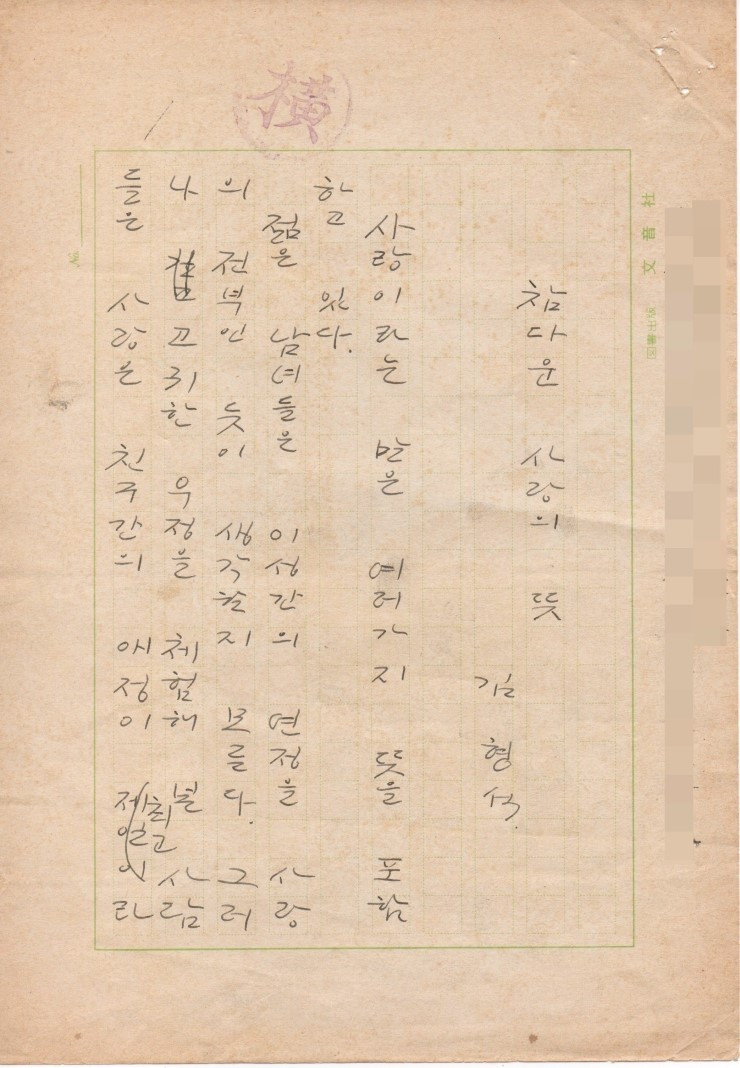 圖書出版 文音社
참다운 사랑의 뜻
김 형석.
사랑이라는 말은 여러가지 뜻을 포함
하고 있다.
젊은 남녀들은 이성간의 연정을 사랑
의 전부인 듯이 생각할지 모른다. 그러
나 고귀한 우정을 체험해 본 사람
들은 사랑은 친구간의 애정이 제일이라
최고
No.
橫